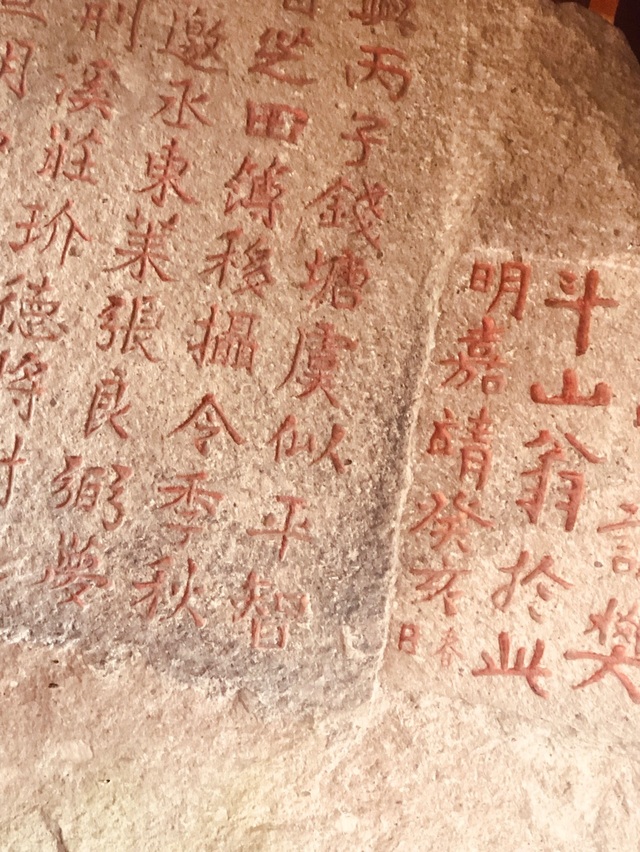 斗山翁於此
明嘉靖癸亥春日
興丙子錢塘虞似平智
芝田簿移攝令季秋
邀丞東萊張良弼夢
別溪莊玠德將
明